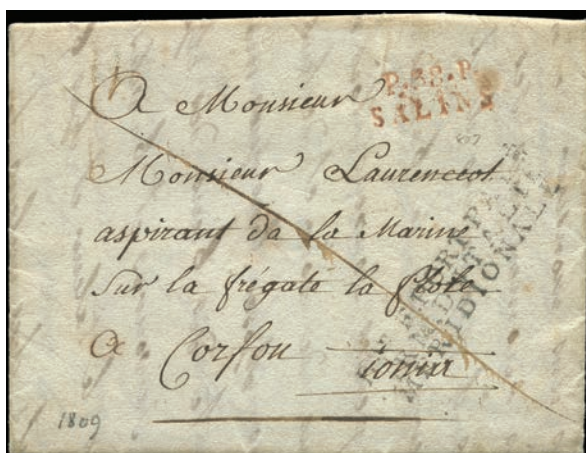 P.38.P.
SALINS
A Monsieur
Monsieur Laurenceot
aspirant de la Marine
Sur la frégate la flote
A Corfou
MERIDIONALE
1809